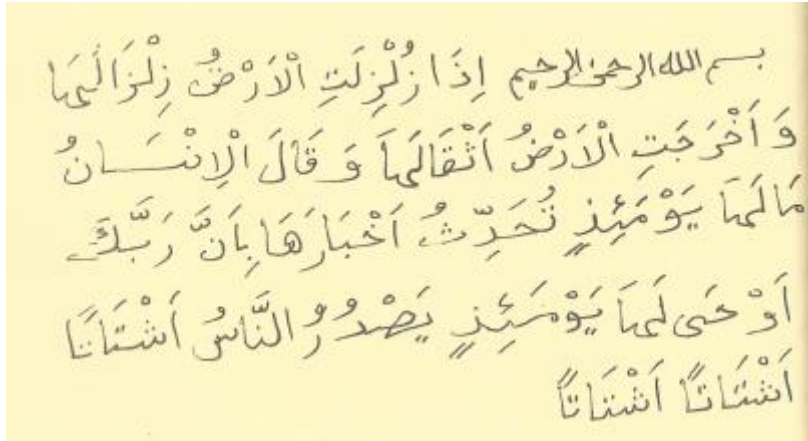 بسم الله الرحمن الرحيم إِذَا زُلْزِلَتِ الْاَرْضُ زِلْزَالَهَا
وَ اَخْرَجَتِ الْاَرْضُ اَثْقَالَهَا وَ قَالَ الْاِنْسَانُ
مَا لَهَا يَوْمَئِذٍ تُحَدِّثُ اَخْبَارَهَا بِاَنَّ رَبَّكَ
اَوْحَى لَهَا يَوْمَئِذٍ يَصْدُرُ النَّاسُ اَشْتَاتًا
اَشْتَاتًا اَشْتَاتًا